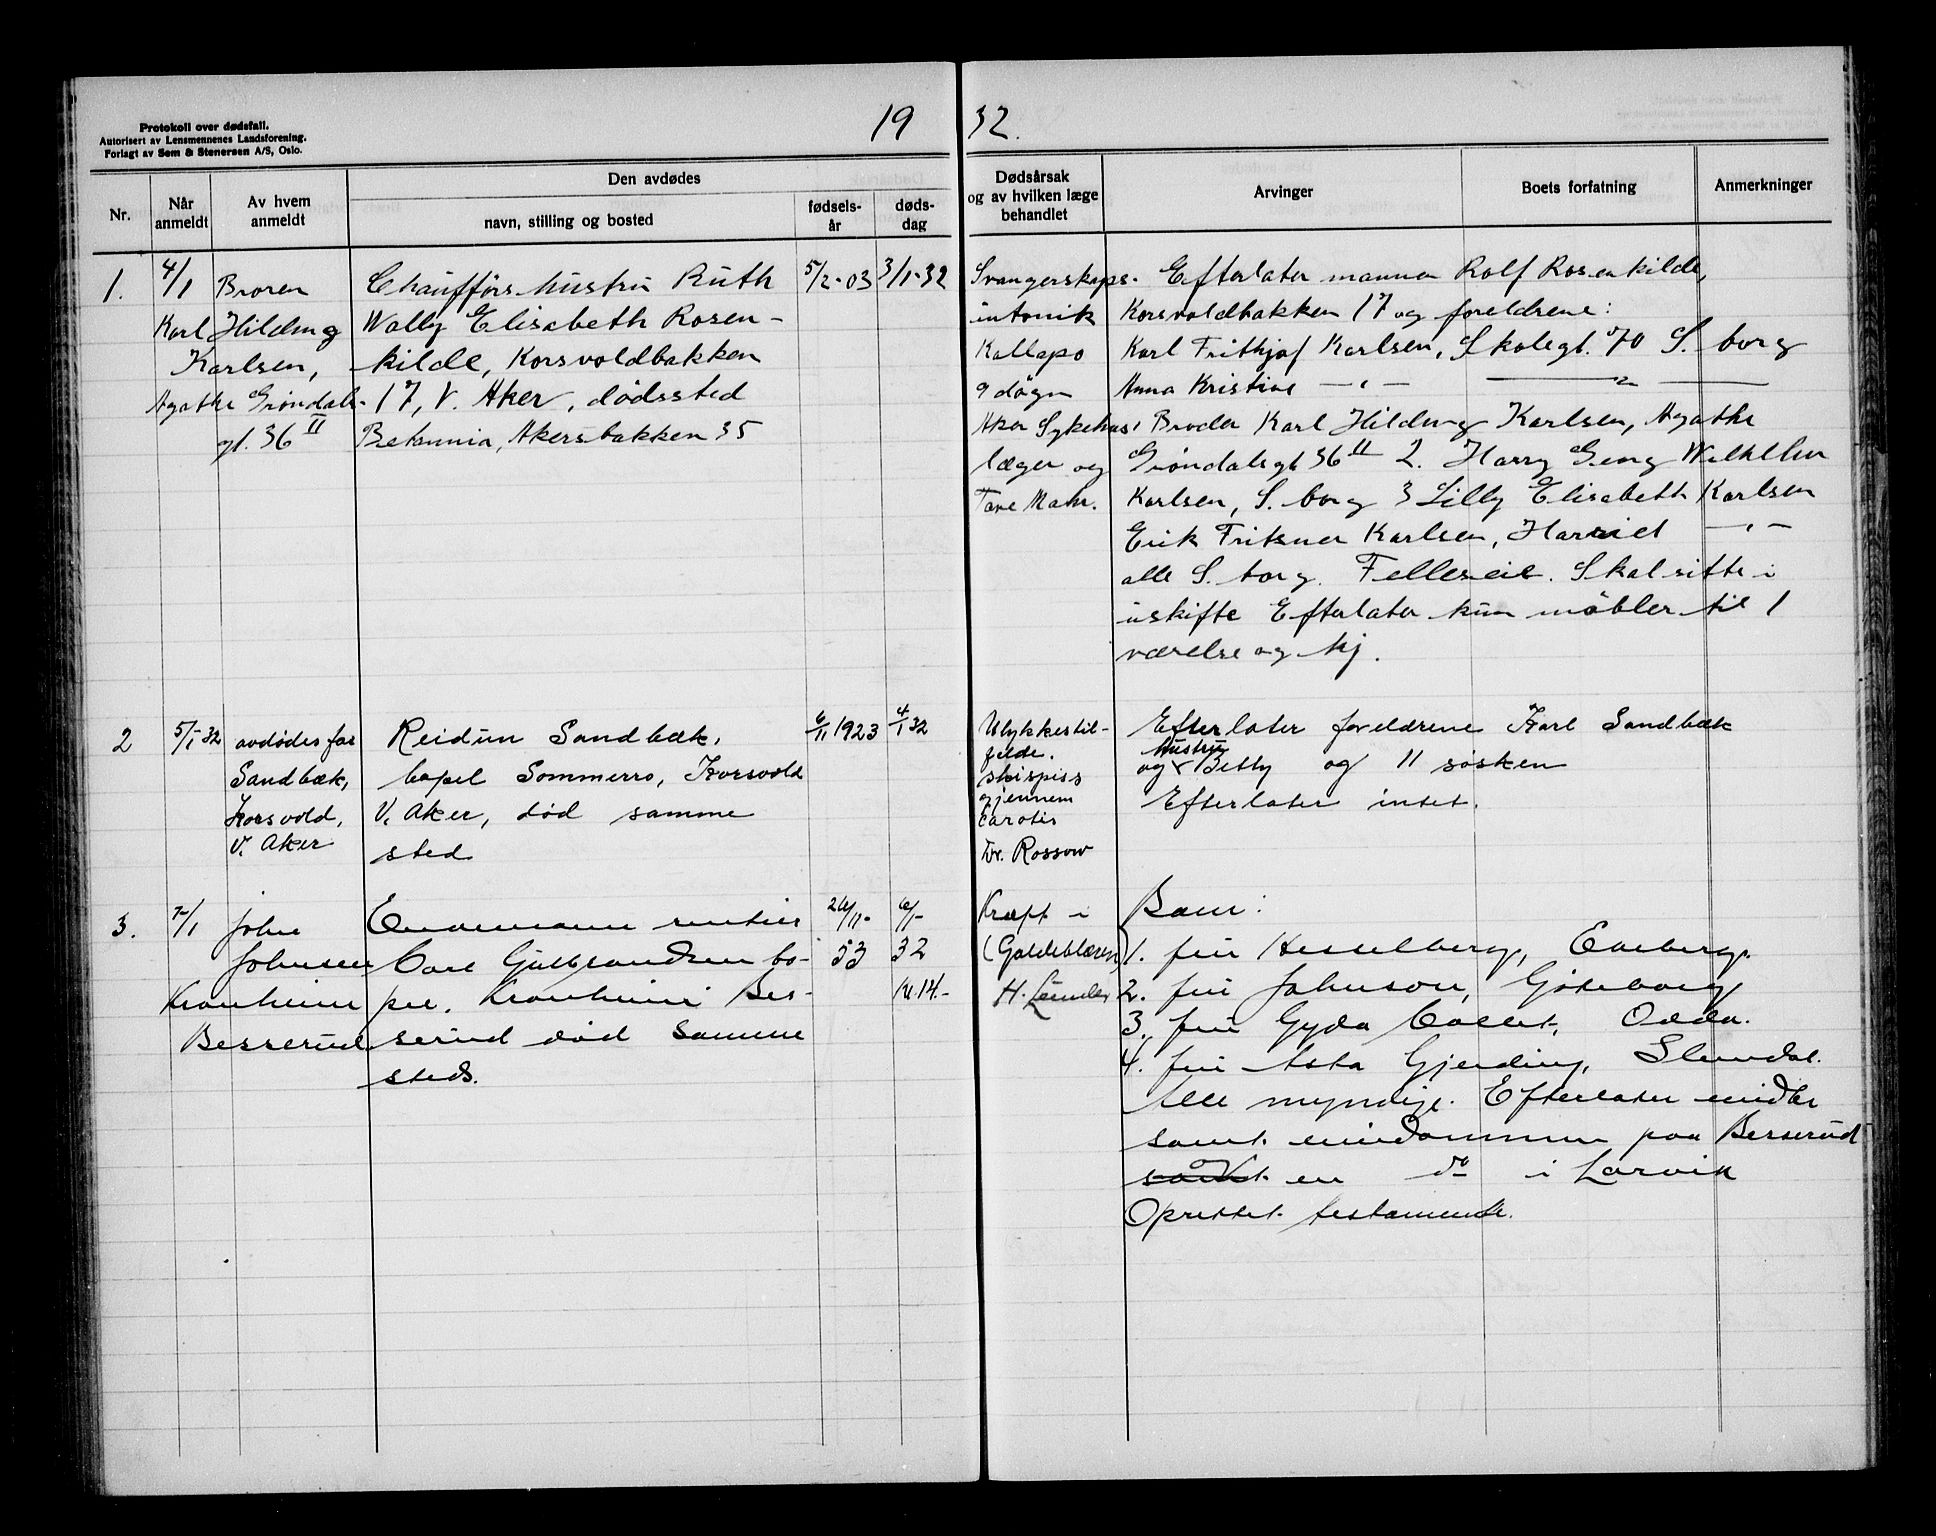 Protokoll over dødsfall.
Autorisert av Lensmennenes Landsforening.
Forlagt av Sem & Stenersen A/S, Oslo.
19 32.
Nr.
Når anmeldt
Av hvem anmeldt
Den avdødes
navn, stilling og bosted
fødsels-år
døds-dag
Dødsårsak og av hvilken læge behandlet
Arvinger
Boets forfatning
Anmerkninger
1.
4/1
Broren
Karl Hilding
Karlsen,
Agathe Grøndals-
gt. 36 II
Chaufførs hustru Ruth
Wally Elisabeth Rosen-
kilde, Korsvoldbakken
17, V. Aker, dødssted
Betania, Akersbakken 35
5/2-03
3/1-32
Svangerskaps-
Kollaps
9 døgn
Aker Sykehus
læger og
Efterlater mannen Rolf Rosenkilde,
Korsvoldbakken 17 og foreldrene:
Karl Frithjof Karlsen, Skolegt. 70 S.borg
Anna Kristine — " — — " —
1 Broder Karl Hilding Karlsen, Agathe
Grøndalsgt 36 II 2. Harry Georg Wilhelm
Karlsen, S.borg 3 Lilly Elisabeth Karlsen
Erik Karlsen, Harriet — " —
alle S.borg. Felleseie. Skal sitte i
uskifte Efterlater kun møbler til 1
værelse og kj.
2
5/1-32
avdødes far
Sandbæk,
Korsvold,
V. Aker
Reidun Sandbæk,
bopel Sommerro, Korsvold
V. Aker, død samme
sted
6/11 1923
4/1 32
Ulykkestil-
felde.
skispiss
gjennem
carotis
Dr. Rossow
Efterlater foreldrene Karl Sandbæk
hustru
og Betty og 11 søsken
Efterlater intet.
3.
7/1
John
Johnsen
Kronheim
Besserud
Enkemann rentier
Carl Gulbrandsen bo-
pel. Kronheim Bes-
serud død samme
sted.
26/11-
53
6/1-
32
kl 14.-
Kræft i
(Galdeblæren)
H.
Barn:
1. fru Hesselberg,
2. fru Johnson, Göteborg
3. fru Gyda Odda.
4. fru Asta Gjerding, Slemdal.
Alle myndige. Efterlater midler
samt eiendommen paa Besserud
samt en do i Larvik
Oprettet testamente.